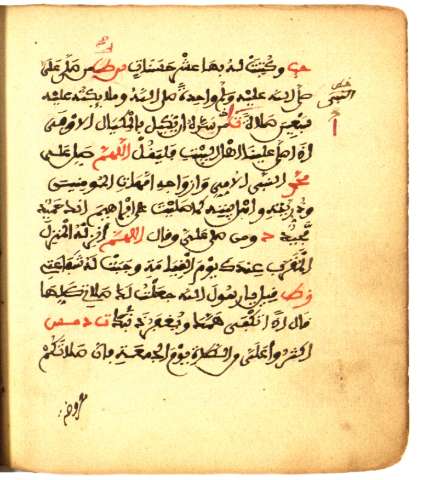 وكتبت له بها عشر حسنات من صلى علي
صلى الله عليه واحدة صلى الله وملائكته عليه
سبعين صلاة من سره ان يكتل بالمكيال الاوفى
اذا صلى علينا اهل البيت فليقل اللهم صل على
محمد النبي الامي وازواجه امهات المومنين
وذريته واهل بيته كما صليت على ابراهيم انك حميد
مجيد ومن صلى علي وقال اللهم انزله المنزل
المقرب عندك يوم القيامة وجبت له شفاعتي
قيل يا رسول الله جعلت لك صلاتي كلها
قال اذا تكفى همك ويغفر ذنبك
اكثروا علي من الصلاة يوم الجمعة فان صلاتكم